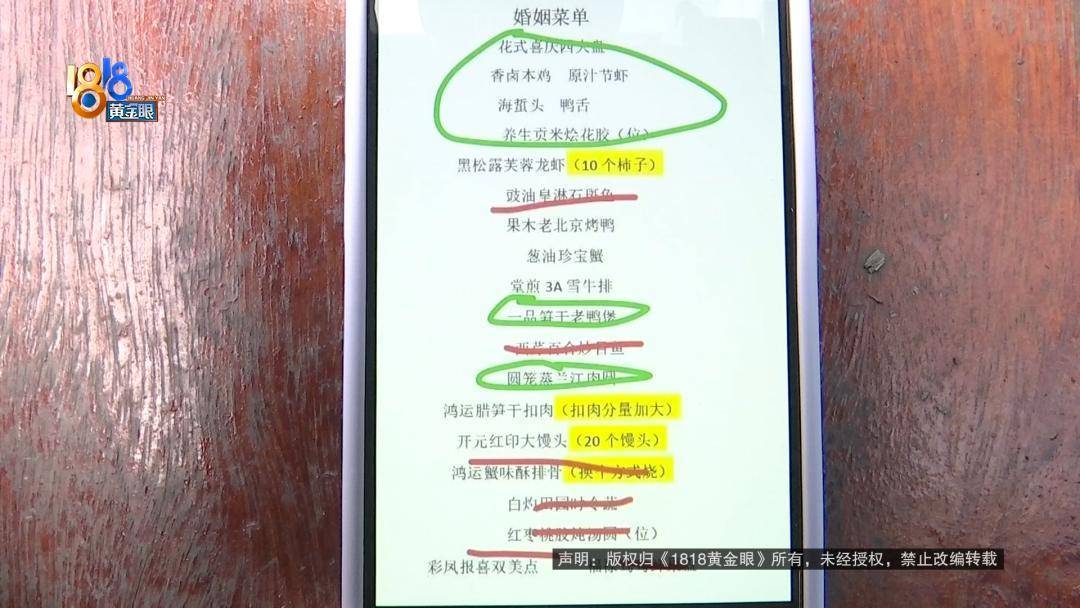 婚姻菜单
花式喜庆四大盘
香卤本鸡 原汁节虾
海蜇头 鸭舌
养生贡米烩花胶（位）
黑松露芙蓉龙虾（10 个柿子）
豉油皇淋石斑鱼
果木老北京烤鸭
葱油珍宝蟹
堂煎 3A 雪牛排
一品笋干老鸭煲
西芹百合炒目鱼
圆笼蒸兰江肉圆
鸿运腊笋干扣肉（扣肉分量加大）
开元红印大馒头（20 个馒头）
鸿运蟹味酥排骨（换个方式烧）
白灼田园时令蔬
红枣桃胶炖汤圆（位）
彩凤报喜双美点
1818
黄金眼
声明：版权归《1818黄金眼》所有，未经授权，禁止改编转载